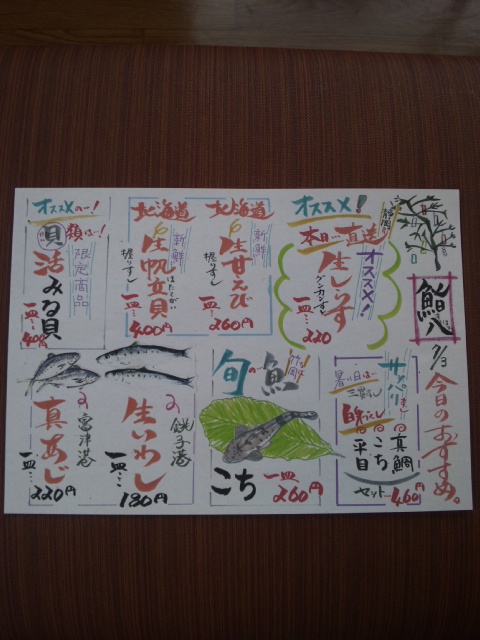 鮨八
7/3
今日のおすすめ。
オススメ!
静岡より
本日…直送
オススメ!
生しらす
グンカンずし
一皿…
220
北海道
の
新鮮
生甘えび
握りずし
一皿…
260円
北海道
の
新鮮
生帆立貝
ほたてがい
握りずし
一皿…
400円
オススメの一!
貝類は…!
限定商品
活みる貝
一皿…
サッパリ
暑い日は…
三貫
白身づくし
真鯛
こち
平目
セット…
460円
旬の魚
こち
一皿…
260円
銚子港
の
生いわし
一皿…
180円
富津港
の
真あじ
一皿…
220円